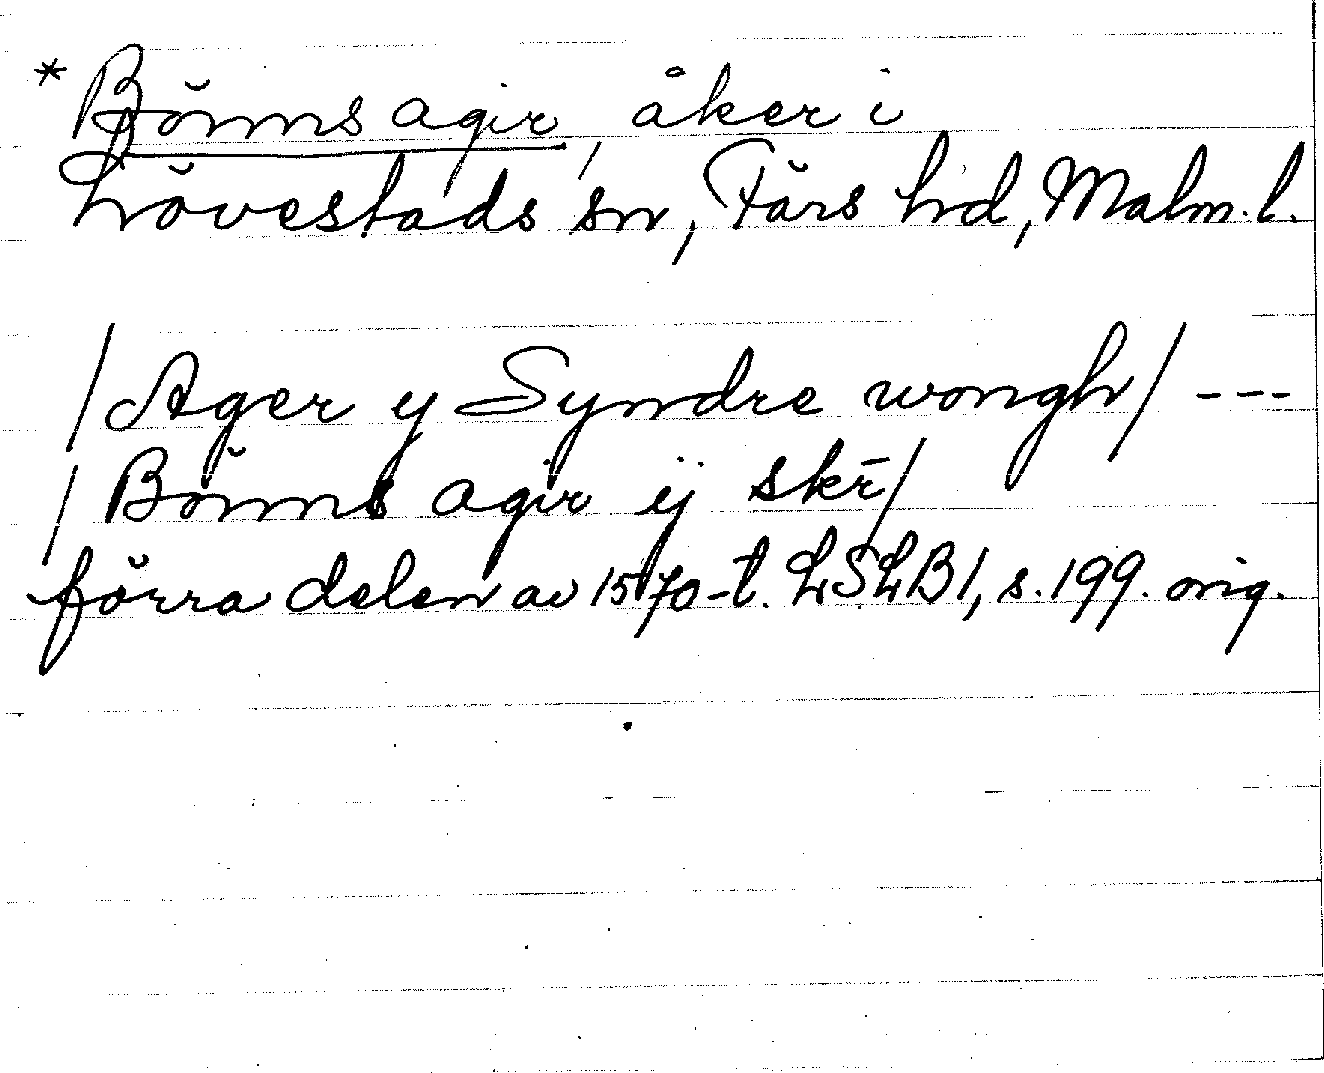 * Bönns agir, åker i
Lövestads sn, Färs hd, Malm. l.
/Ager y Syndre wongh/ ---
/Bönns agir ij skr̄/
förra delen av 1570-t. LSLB 1, s. 199. orig.